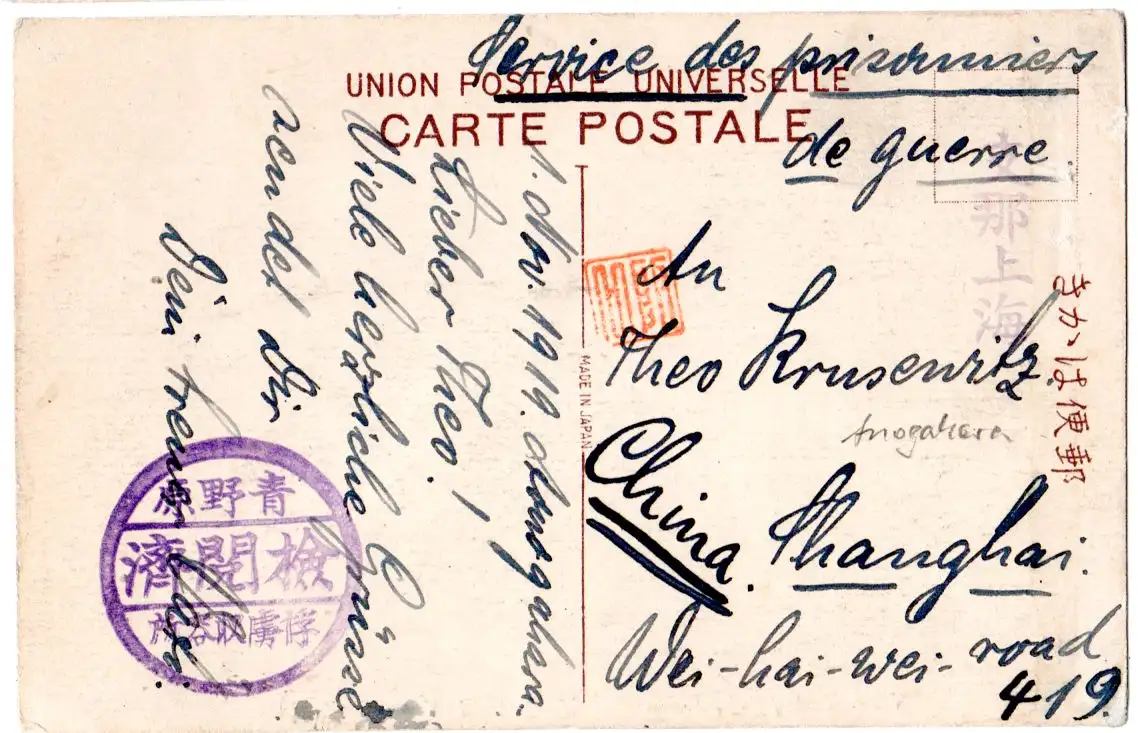 Service des prisonniers
de guerre
UNION POSTALE UNIVERSELLE
CARTE POSTALE
支那上海
郵便はかき
An
Theo Krusewitz.
Anogahara
China. Shanghai.
Wei-hai-wei-road
419.
MADE IN JAPAN
1. Nov. 1919. Aonogahara.
Lieber Theo!
Viele herzliche Grüsse
sendet Dir
Dein treuer
青野原
檢閱濟
俘虜收容所